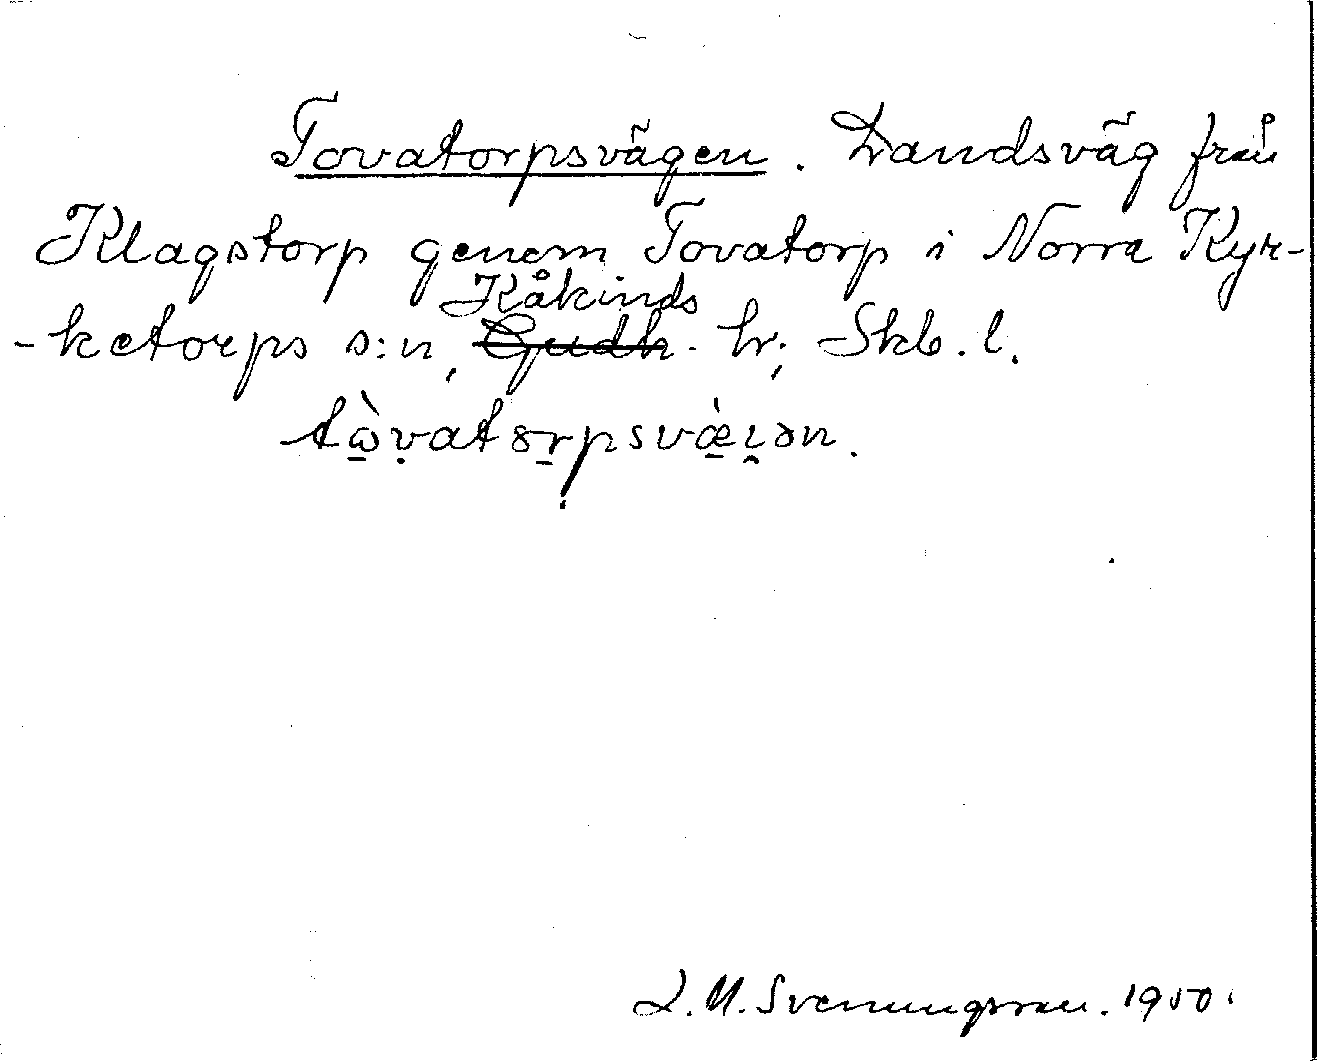 Tovatorpsvägen. Landsväg från
Klagstorp genom Tovatorp i Norra Kyr-
Kåkinds
-ketorps s:n, Gudh. hr; Skb. l.
tὼ̱ṿatꝏṟpsvæ̱̀ı̯ən.
L. M. Svenungsson. 1950.